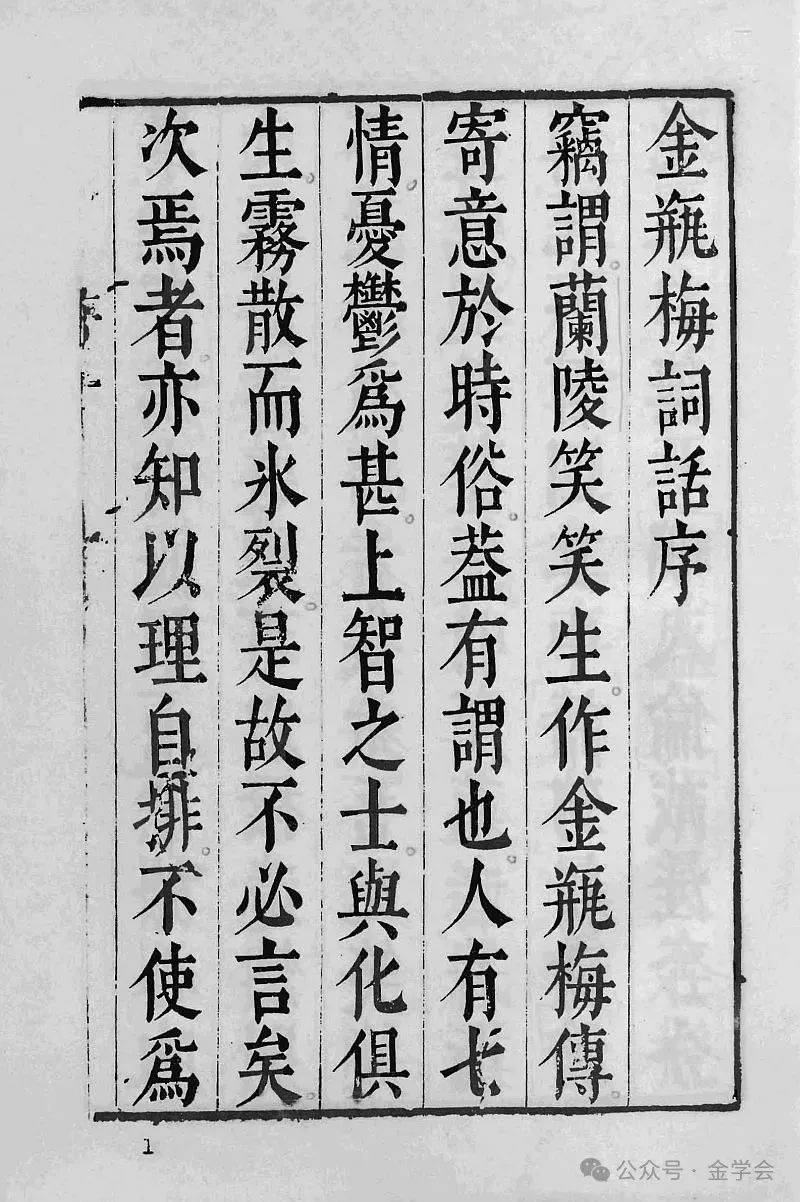 金瓶梅詞話序
竊謂蘭陵笑笑生作金瓶梅傳
寄意於時俗蓋有謂也人有七
情憂鬱爲甚上智之士與化俱
生霧散而氷裂是故不必言矣
次焉者亦知以理自排不使爲
1
公众号·金学会